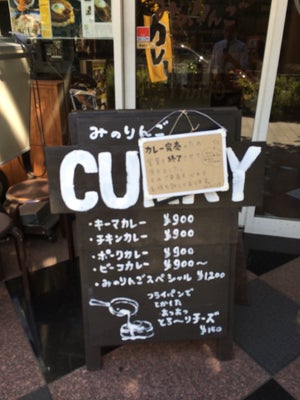 カレー
みのりんご
CURRY
カレー完売のため
営業を終了させて
・キーマカレー ¥900
・チキンカレー ¥900
・ポークカレー ¥900
・ビーフカレー ¥900〜
・みのりんごスペシャル ¥1200
フライパンで
とかした
あっつあつ
とろ〜りチーズ
¥150